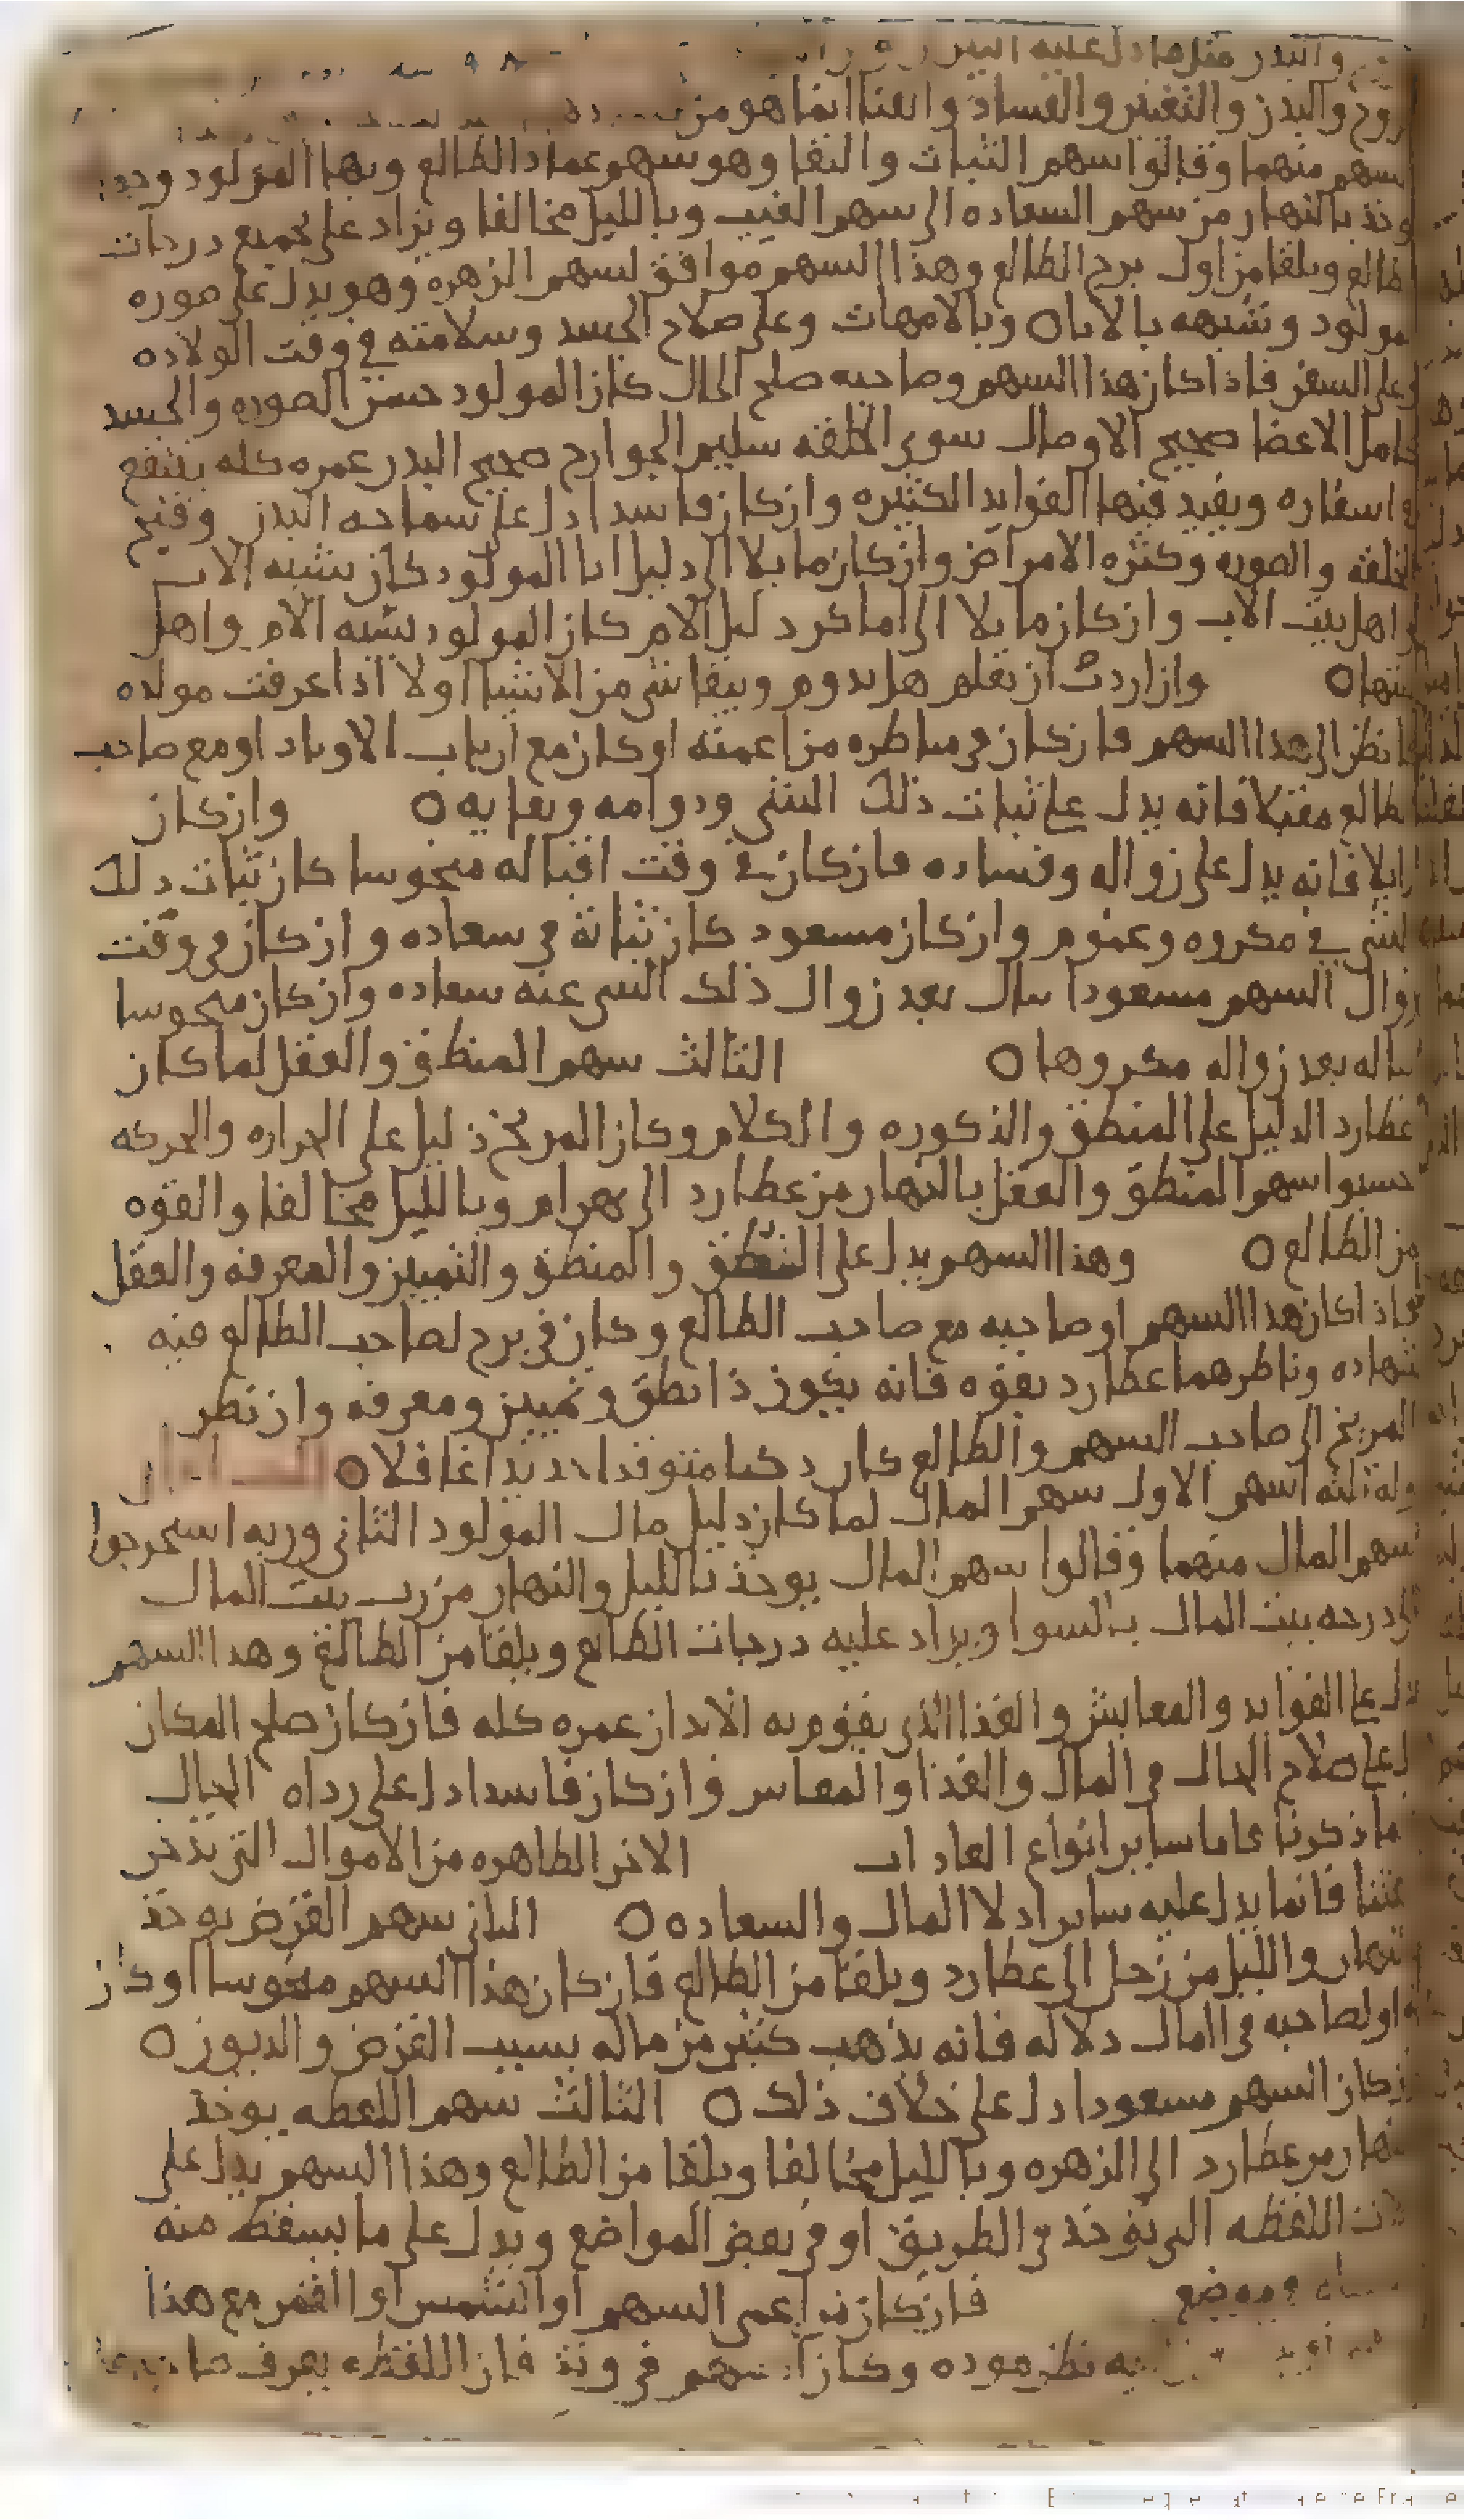 والبدن مثل ما دل عليه النير
روح والبدن والتغيير والفساد والفنا انما هو من
سهم منهما وقالوا سهم الثبات والبقا وهو سهم عماد الطالع وبها المولود
يوخذ بالنهار من سهم السعاده الى سهم الغيب وبالليل مخالفا ويزاد على جميع درجات
طالع ويلقا من اول برج الطالع وهذا السهم موافق لسهم الزهره وهو يدل على صوره
مولود وتشبهه بالابا ٥ وبالامهات وعلى صلاح الجسد وسلامته في وقت الولاده
وعلى السفر فاذا كان هذا السهم وصاحبه صلح الحال كان المولود حسن الصوره والجسد
كامل الاعضا صحيح الاوصال سوى الخلقه سليم الجوارح صحيح البدن عمره كله ينتفع
في اسفاره ويفيد فيها الفوايد الكثيره وان كان فاسدا دل على سماجه البدن وقبح
الخلقه والصوره وكثره الامراض وان كان مايلا الى دليل ابا المولود كان يشبه الاب
او اهل بيت الاب وان كان مايلا الى اماكن دليل الام كان المولود يشبه الام واهل
بيتها ٥ وان اردت ان تعلم هل يدوم ويبقا شى من الاشيا اولا اذا عرفت مولده
فانظر الى هذا السهم فان كان في مناظره من اعمته او كان مع ارباب الاوتاد او مع صاحب
طالع مقبلا فانه يدل على ثبات ذلك الشى ودوامه وبقايه ٥ وان كان
زايلا فانه يدل على زواله وفساده فان كان في وقت اقباله منحوسا كان ثبات ذلك
الشى في مكروه وغموم وان كان مسعود كان ثباته في سعاده وان كان في وقت
زوال السهم مسعودا نال بعد زوال ذلك الشى عنه سعاده وان كان منحوسا
ناله بعد زواله مكروها ٥ الثالث سهم المنطق والعقل لما كان
عطارد الدليل على المنطق والذكوره والكلام وكان المريخ دليل على الحراره والحركه
حسبوا سهم المنطق والعقل بالنهار من عطارد الى بهرام وبالليل مخالفا والقوه
من الطالع ٥ وهذا السهم يدل على النطق والمنطق والتمييز والمعرفه والعقل
فاذا كان هذا السهم او صاحبه مع صاحب الطالع وكان في برج لصاحب الطالع فيه
شهاده وناظرهما عطارد بقوه فانه يكون ذا نطق وتمييز ومعرفه وان نظر
المريخ الى صاحب السهم والطالع كان دكيا متوقدا حديدا غافلا ٥
وله ثلثه اسهم الاول سهم المال لما كان دليل مال المولود الثاني وربه استخرجوا
سهم المال منهما وقالوا سهم المال يوخذ بالليل والنهار من رب بيت المال
الى درجه بيت المال بالسوا ويزاد عليه درجات الطالع ويلقا من الطالع وهذا السهم
يدل على الفوايد والمعايش والغذا الذى يقوم به الابدان عمره كله فان كان صلح المكان
دل على صلاح الحال في المال والغذا والمعاش وان كان فاسدا دل على رداه الحال
ما ذكرنا عاما ساير انواع العادات الاخر الظاهره من الاموال التي يذخر
عثنا فانما يدل عليه ساير ادلا المال والسعاده ٥ الثاني سهم القرض يوخذ
بالنهار والليل من زحل الى عطارد ويلقا من الطالع فان كان هذا السهم منحوسا او كان
له او لصاحبه في المال دلاله فانه يذهب كثير من ماله بسبب القرض والديون ٥
وان كان السهم مسعودا دل على خلاف ذلك ٥ الثالث سهم اللقطه يوخذ
بالنهار من عطارد الى الزهره وبالليل مخالفا ويلقا من الطالع وهذا السهم يدل على
اللقطه التي توخذ في الطريق او في بعض المواضع ويدل على ما يسقط منه
وموضع فان كان مزاعمى السهم او الشمس او القمر مع هذا
نظر موده وكان السهم في وتد فان اللقطه يعرف